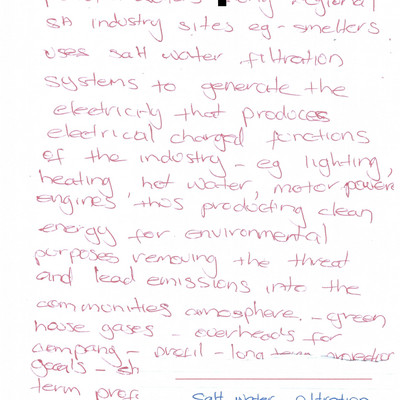 regional
SA industry sites eg - smelters
uses salt water filtration
systems to generate the
electricity that produces
electrical charged functions
of the industry - eg lighting,
heating, hot water, motor powered
engines, thus producting clean
energy for environmental
purposes removing the threat
and lead emissions into the
communities atmosphere. - green
house gases - overheads for
company - profit - long term
goals -
term
salt water filtration